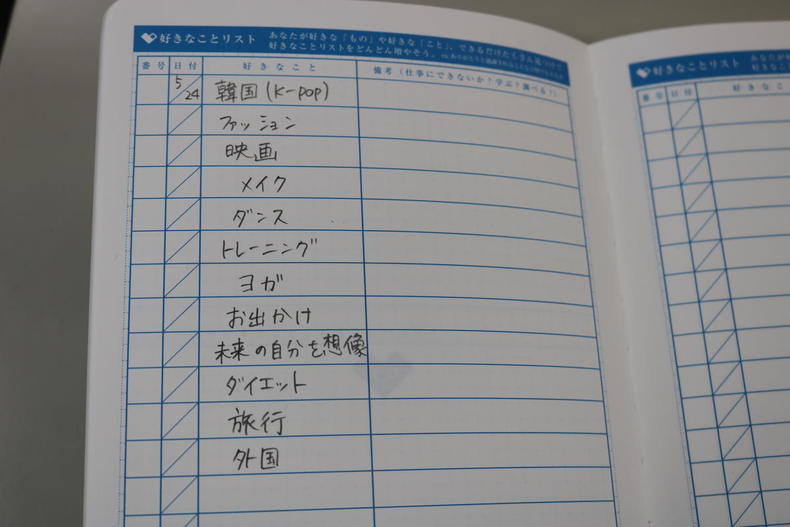 好きなことリスト あなたが好きな「もの」や好きな「こと」、できるだけたくさん見つけて
好きなことリストをどんどん増やそう。
番号 日付 好きなこと 備考（仕事にできないか？学ぶ？調べる？）
5/24 韓国(K-pop)
ファッション
映画
メイク
ダンス
トレーニング
ヨガ
お出かけ
未来の自分を想像
ダイエット
旅行
外国
好きなことリスト
番号 日付 好きなこ